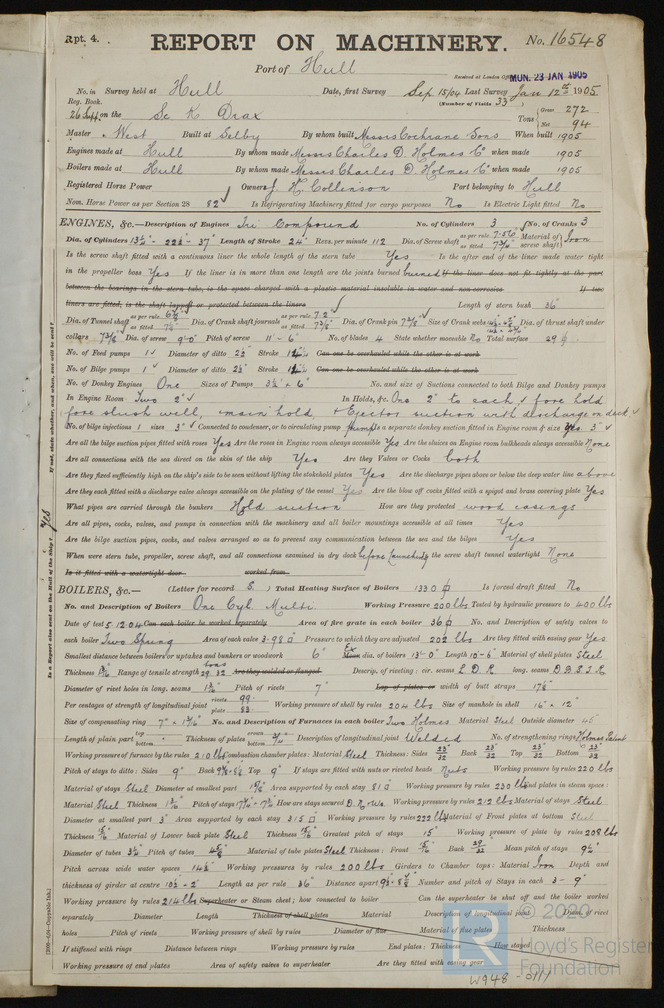 Rpt. 4.
REPORT ON MACHINERY.
No. 16548
Port of Hull
Received at London Office MON. 23 JAN 1905
No. in Survey held at Hull Date, first Survey Sep 15/04 Last Survey Jan 12th 1905
Reg. Book. (Number of Visits 33)
26 Supp on the Sc K Drax Tons { Gross 272 Net 94
Master West Built at Selby By whom built Messrs Cochrane Sons When built 1905
Engines made at Hull By whom made Messrs Charles D. Holmes & Co when made 1905
Boilers made at Hull By whom made Messrs Charles D. Holmes & Co when made 1905
Registered Horse Power Owners J. H. Collinson Port belonging to Hull
Nom. Horse Power as per Section 28 82 Is Refrigerating Machinery fitted for cargo purposes No Is Electric Light fitted No
ENGINES, &c.—Description of Engines Tri Compound No. of Cylinders 3 No. of Cranks 3
Dia. of Cylinders 13½" - 22½ - 37" Length of Stroke 24" Revs. per minute 112 Dia. of Screw shaft as per rule 7.56" as fitted 7⅞" Material of screw shaft Iron
Is the screw shaft fitted with a continuous liner the whole length of the stern tube Yes Is the after end of the liner made water tight
in the propeller boss Yes If the liner is in more than one length are the joints burned burned If the liner does not fit tightly at the part
between the bearings in the stern tube, is the space charged with a plastic material insoluble in water and non-corrosive If two
liners are fitted, is the shaft lapped or protected between the liners Length of stern bush 36"
Dia. of Tunnel shaft as per rule as fitted Dia. of Crank shaft journals as per rule 7.2 as fitted Dia. of Crank pin Size of Crank webs Dia. of thrust shaft under
collars Dia. of screw 9-0" Pitch of screw 11'-6" No. of blades 4 State whether moveable No Total surface 29
No. of Feed pumps 1 Diameter of ditto 2½ Stroke Can one be overhauled while the other is at work
No. of Bilge pumps 1 Diameter of ditto 2½ Stroke Can one be overhauled while the other is at work
No. of Donkey Engines One Sizes of Pumps 3½ × 6" No. and size of Suctions connected to both Bilge and Donkey pumps
In Engine Room Two 2" In Holds, &c. One 2" to each, fore hold
fore slush well, main hold, & Ejector suction with discharge on deck
No. of bilge injections 1 sizes 3" Connected to condenser, or to circulating pump pump Is a separate donkey suction fitted in Engine room & size Yes 5"
Are all the bilge suction pipes fitted with roses Yes Are the roses in Engine room always accessible Yes Are the sluices on Engine room bulkheads always accessible None
Are all connections with the sea direct on the skin of the ship Yes Are they Valves or Cocks both
Are they fixed sufficiently high on the ship's side to be seen without lifting the stokehold plates Yes Are the discharge pipes above or below the deep water line above
Are they each fitted with a discharge valve always accessible on the plating of the vessel Yes Are the blow off cocks fitted with a spigot and brass covering plate Yes
What pipes are carried through the bunkers Hold suction How are they protected wood casings
Are all pipes, cocks, valves, and pumps in connection with the machinery and all boiler mountings accessible at all times Yes
Are the bilge suction pipes, cocks, and valves arranged so as to prevent any communication between the sea and the bilges Yes
When were stern tube, propeller, screw shaft, and all connections examined in dry dock before launching Is the screw shaft tunnel watertight None
Is it fitted with a watertight door worked from
BOILERS, &c.— (Letter for record S.) Total Heating Surface of Boilers 1330 Is forced draft fitted No
No. and Description of Boilers One Cyl. Multi. Working Pressure 200 lbs Tested by hydraulic pressure to 400 lbs
Date of test 5.12.04 Can each boiler be worked separately Area of fire grate in each boiler 36 No. and Description of safety valves to
each boiler Two Spring Area of each valve 3.98 Pressure to which they are adjusted 202 lbs Are they fitted with easing gear Yes
Smallest distance between boilers or uptakes and bunkers or woodwork 6" Ex Mean dia. of boilers 13'-0" Length 10-6" Material of shell plates Steel
Thickness Range of tensile strength tons 29.32 Are they welded or flanged Descrip. of riveting: cir. seams L D R long. seams D B S T R
Diameter of rivet holes in long. seams Pitch of rivets 7" Lap of plates or width of butt straps 17¼"
Per centages of strength of longitudinal joint rivets 99 plate 83 Working pressure of shell by rules 204 lbs Size of manhole in shell 16" × 12"
Size of compensating ring No. and Description of Furnaces in each boiler Two Holmes Material Steel Outside diameter 45"
Length of plain part top bottom Thickness of plates crown bottom Description of longitudinal joint Welded No. of strengthening rings Holmes Patent
Working pressure of furnace by the rules 210 lbs Combustion chamber plates: Material Steel Thickness: Sides 23/32 Back 23/32 Top 23/32 Bottom 23/32
Pitch of stays to ditto: Sides 9" Back Top 9" If stays are fitted with nuts or riveted heads Nuts Working pressure by rules 220 lbs
Material of stays Steel Diameter at smallest part Area supported by each stay 81 Working pressure by rules 230 lbs End plates in steam space:
Material Steel Thickness Pitch of stays How are stays secured D.N.Wa. Working pressure by rules 212 lbs Material of stays Steel
Diameter at smallest part 3" Area supported by each stay 315 Working pressure by rules 222 lbs Material of Front plates at bottom Steel
Thickness Material of Lower back plate Steel Thickness Greatest pitch of stays 15" Working pressure of plate by rules 208 lbs
Diameter of tubes 3¼ Pitch of tubes Material of tube plates Steel Thickness: Front Back 29/32 Mean pitch of stays
Pitch across wide water spaces 14½" Working pressures by rules 200 lbs Girders to Chamber tops: Material Iron Depth and
thickness of girder at centre 10½ - 2" Length as per rule 36" Distance apart Number and pitch of Stays in each 3 - 9"
Working pressure by rules 214 lbs Superheater or Steam chest; how connected to boiler Can the superheater be shut off and the boiler worked
separately Diameter Length Thickness of shell plates Material Description of longitudinal joint Diam. of rivet
holes Pitch of rivets Working pressure of shell by rules Diameter of flue Material of flue plates Thickness
If stiffened with rings Distance between rings Working pressure by rules End plates: Thickness How stayed
Working pressure of end plates Area of safety valves to superheater Are they fitted with easing gear
Is a Report also sent on the Hull of the Ship? Yes
If not, state whether, and when, one will be sent?
W948-0111
© 2020
Lloyd's Register
Foundation